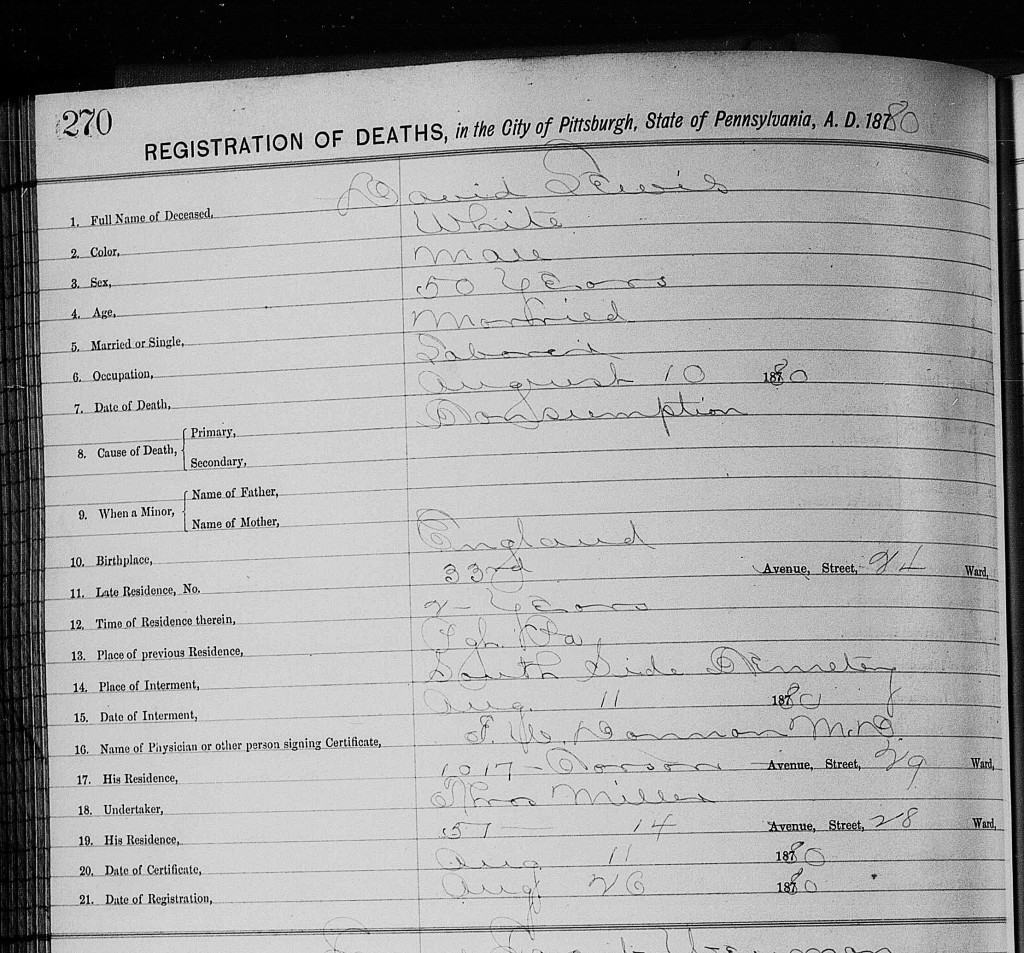 270
REGISTRATION OF DEATHS, in the City of Pittsburgh, State of Pennsylvania, A. D. 1880
1. Full Name of Deceased, David Lewis
2. Color, White
3. Sex, Male
4. Age, 50 Years
5. Married or Single, Married
6. Occupation, Laborer
7. Date of Death, August 10 1880
8. Cause of Death, { Primary, Consumption
Secondary,
9. When a Minor, { Name of Father,
Name of Mother,
10. Birthplace, England
11. Late Residence, No. 33rd Avenue, Street, 24 Ward,
12. Time of Residence therein, 2 - Years
13. Place of previous Residence, Pgh. Pa,
14. Place of Interment, South Side Cemetery
15. Date of Interment, Aug. 11 1880
16. Name of Physician or other person signing Certificate, M.D.
17. His Residence, 1017 - Carson Avenue, Street, 29 Ward,
18. Undertaker, Thos Miller
19. His Residence, 57 — 14 Avenue, Street, 28 Ward,
20. Date of Certificate, Aug 11 1880
21. Date of Registration, Aug 26 1880